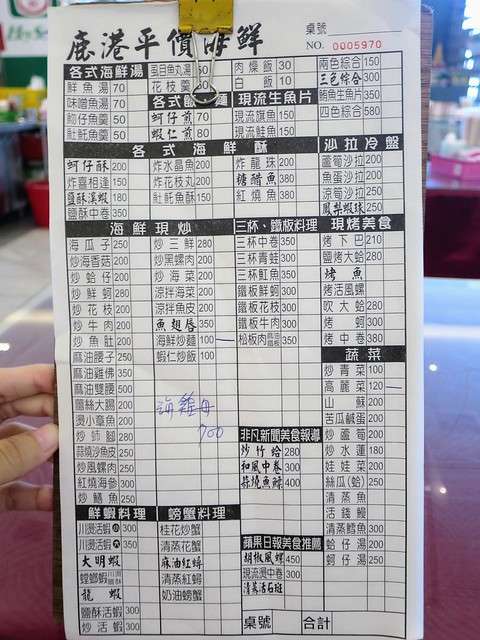 鹿港平價海鮮
桌號
NO. 0005970
各式海鮮湯
鮮魚湯 70
味噌魚湯 70
魩仔魚羹 50
魠魠魚羹 50
虱目魚丸湯 50
花枝羹 50
蚵仔煎 70
蝦仁煎 80
肉燥飯 30
白飯 10
現流生魚片
現流旗魚 150
現流鮭魚 150
兩色綜合 150
三色綜合 300
鮪魚生魚片 350
四色綜合 580
各式海鮮酥
蚵仔酥 200
炸喜相逢 150
鹽酥溪蝦 180
鹽酥中卷 350
炸水晶魚 200
炸花枝丸 200
魠魠魚酥 150
炸龍珠 200
糖醋魚 380
紅燒魚 380
沙拉冷盤
蘆筍沙拉 200
魚蛋沙拉 200
涼筍沙拉 250
鳳梨蝦球 250
海鮮現炒
海瓜子 250
炒海香菇 200
炒蛤仔 200
炒鮮蚵 280
炒花枝 200
炒牛肉 200
炒魚肚 200
麻油腰子 250
麻油雞佛 350
麻油雙腰 500
薑絲大腸 200
燙小章魚 200
炒師腳 280
蒜燒沙魚皮 250
炒風螺肉 250
紅燒海參 300
炒鱔魚 250
炒三鮮 280
炒黑螺肉 200
炒海菜 200
涼拌海菜 200
涼拌魚皮 200
魚翅唇 350
海鮮炒麵 100
蝦仁炒飯 100
海雞母 700
三杯、鐵板料理
三杯中卷 350
三杯青蛙 300
三杯魟魚 350
鐵板鮮蚵 300
鐵板花枝 300
鐵板牛肉 300
松板肉 350
現烤美食
烤下巴 210
鹽烤大蛤 280
烤魚
烤活風螺
吹大蛤 280
烤蚵 300
烤中卷 380
蔬菜
炒青菜 100
高麗菜 120
山蘇 200
苦瓜鹹蛋 200
炒蘆筍 200
炒水蓮 180
娃娃菜 200
絲瓜(蛤) 250
清蒸魚
活錢鰻
清蒸鱈魚 300
蛤仔湯 200
蚵仔湯 250
非凡新聞美食報導
炒竹蛤 280
和風中卷 300
蒜燒魚鰾 400
蘋果日報美食推薦
胡椒風螺 450
現流燙中卷 300
清蒸活石斑
鮮蝦料理
川燙活蝦 小 300
川燙活蝦 大 350
大明蝦
螳螂蝦 川燙
龍蝦
鹽酥活蝦 300
炒活蝦 300
螃蟹料理
桂花炒蟹
清蒸花蟹
麻油紅蟳
清蒸紅蟳
奶油螃蟹
桌號
合計